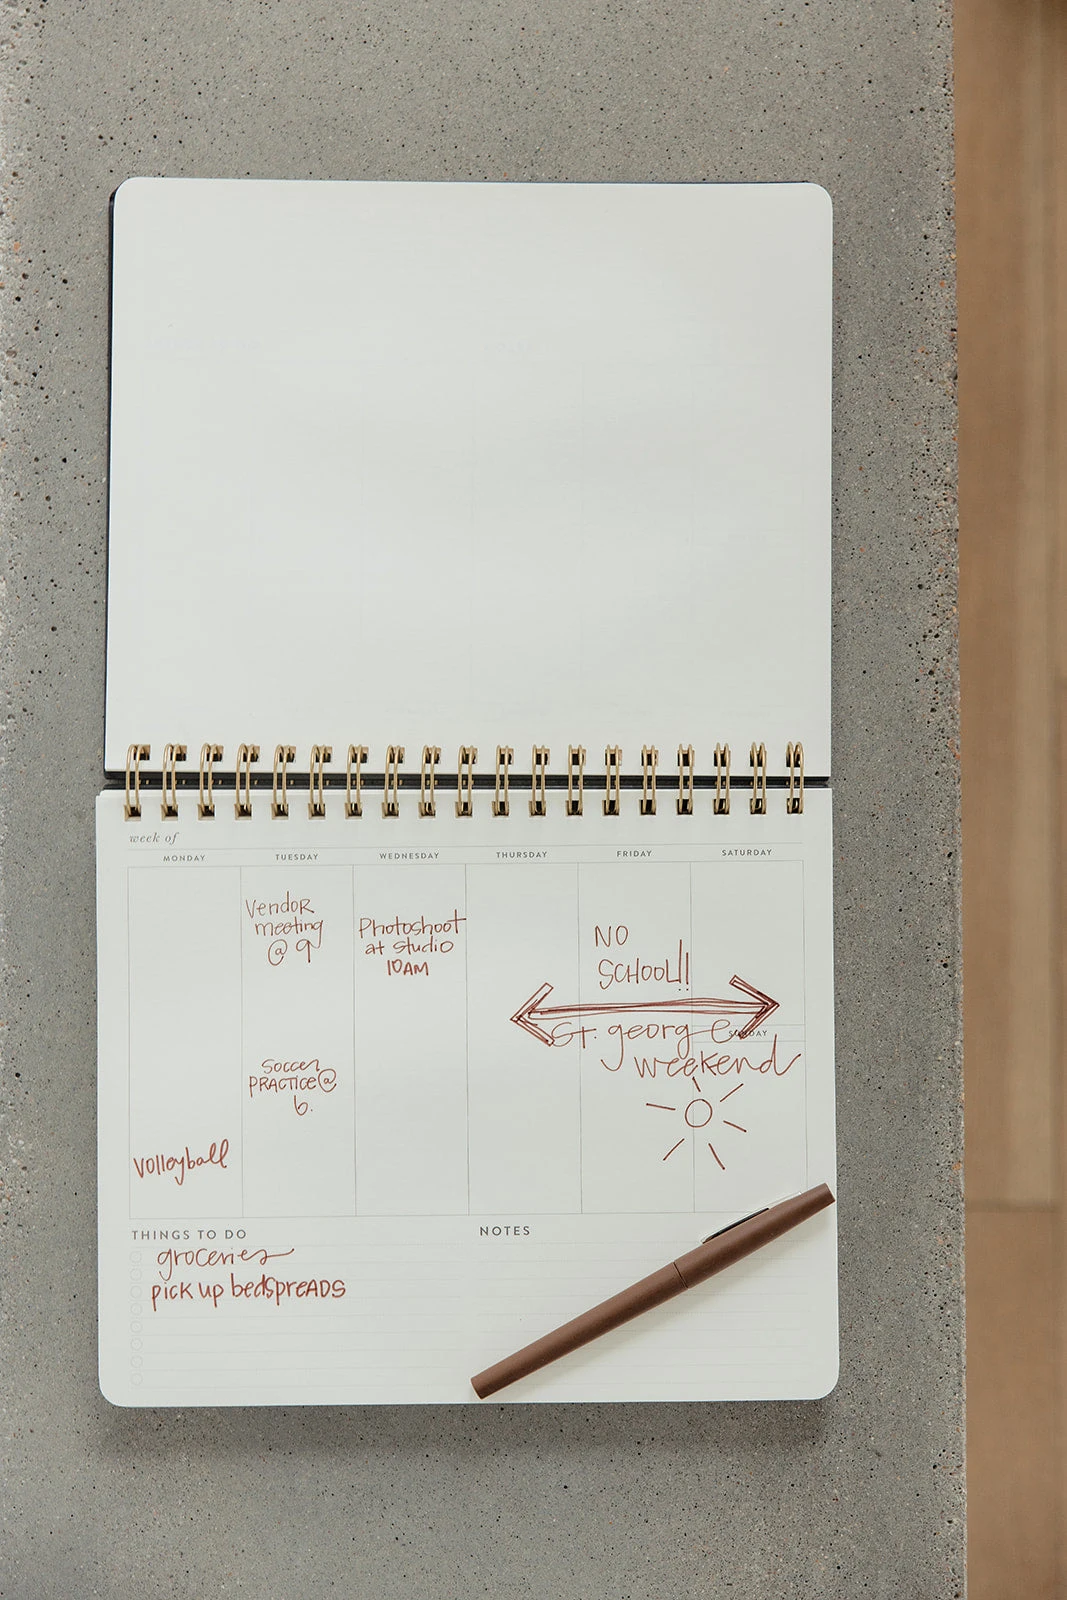 week of
MONDAY TUESDAY WEDNESDAY THURSDAY FRIDAY SATURDAY
Vendor
meeting
@ 9
Soccer
PRACTICE @
6.
Photoshoot
at studio
10AM
NO
SCHOOL!!
SUNDAY
St. george
weekend
volleyball
THINGS TO DO
groceries
pick up bedspreads
NOTES